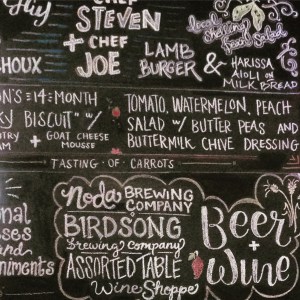 CHEF
STEVEN
+ CHEF
JOE
CHOUX
LAMB
BURGER
&
local
shelling
bean salad
HARISSA
AIOLI on
MILK BREAD
ON'S 14 MONTH
KY BISCUIT" w/
NTRY
AM + GOAT CHEESE
MOUSSE
TOMATO, WATERMELON, PEACH
SALAD w/ BUTTER PEAS and
BUTTERMILK CHIVE DRESSING
TASTING OF CARROTS
onal
ses
and
niments
Noda BREWING
COMPANY
BIRDSONG
Brewing Company
ASSORTED TABLE
Wine Shoppe
Beer
+
Wine